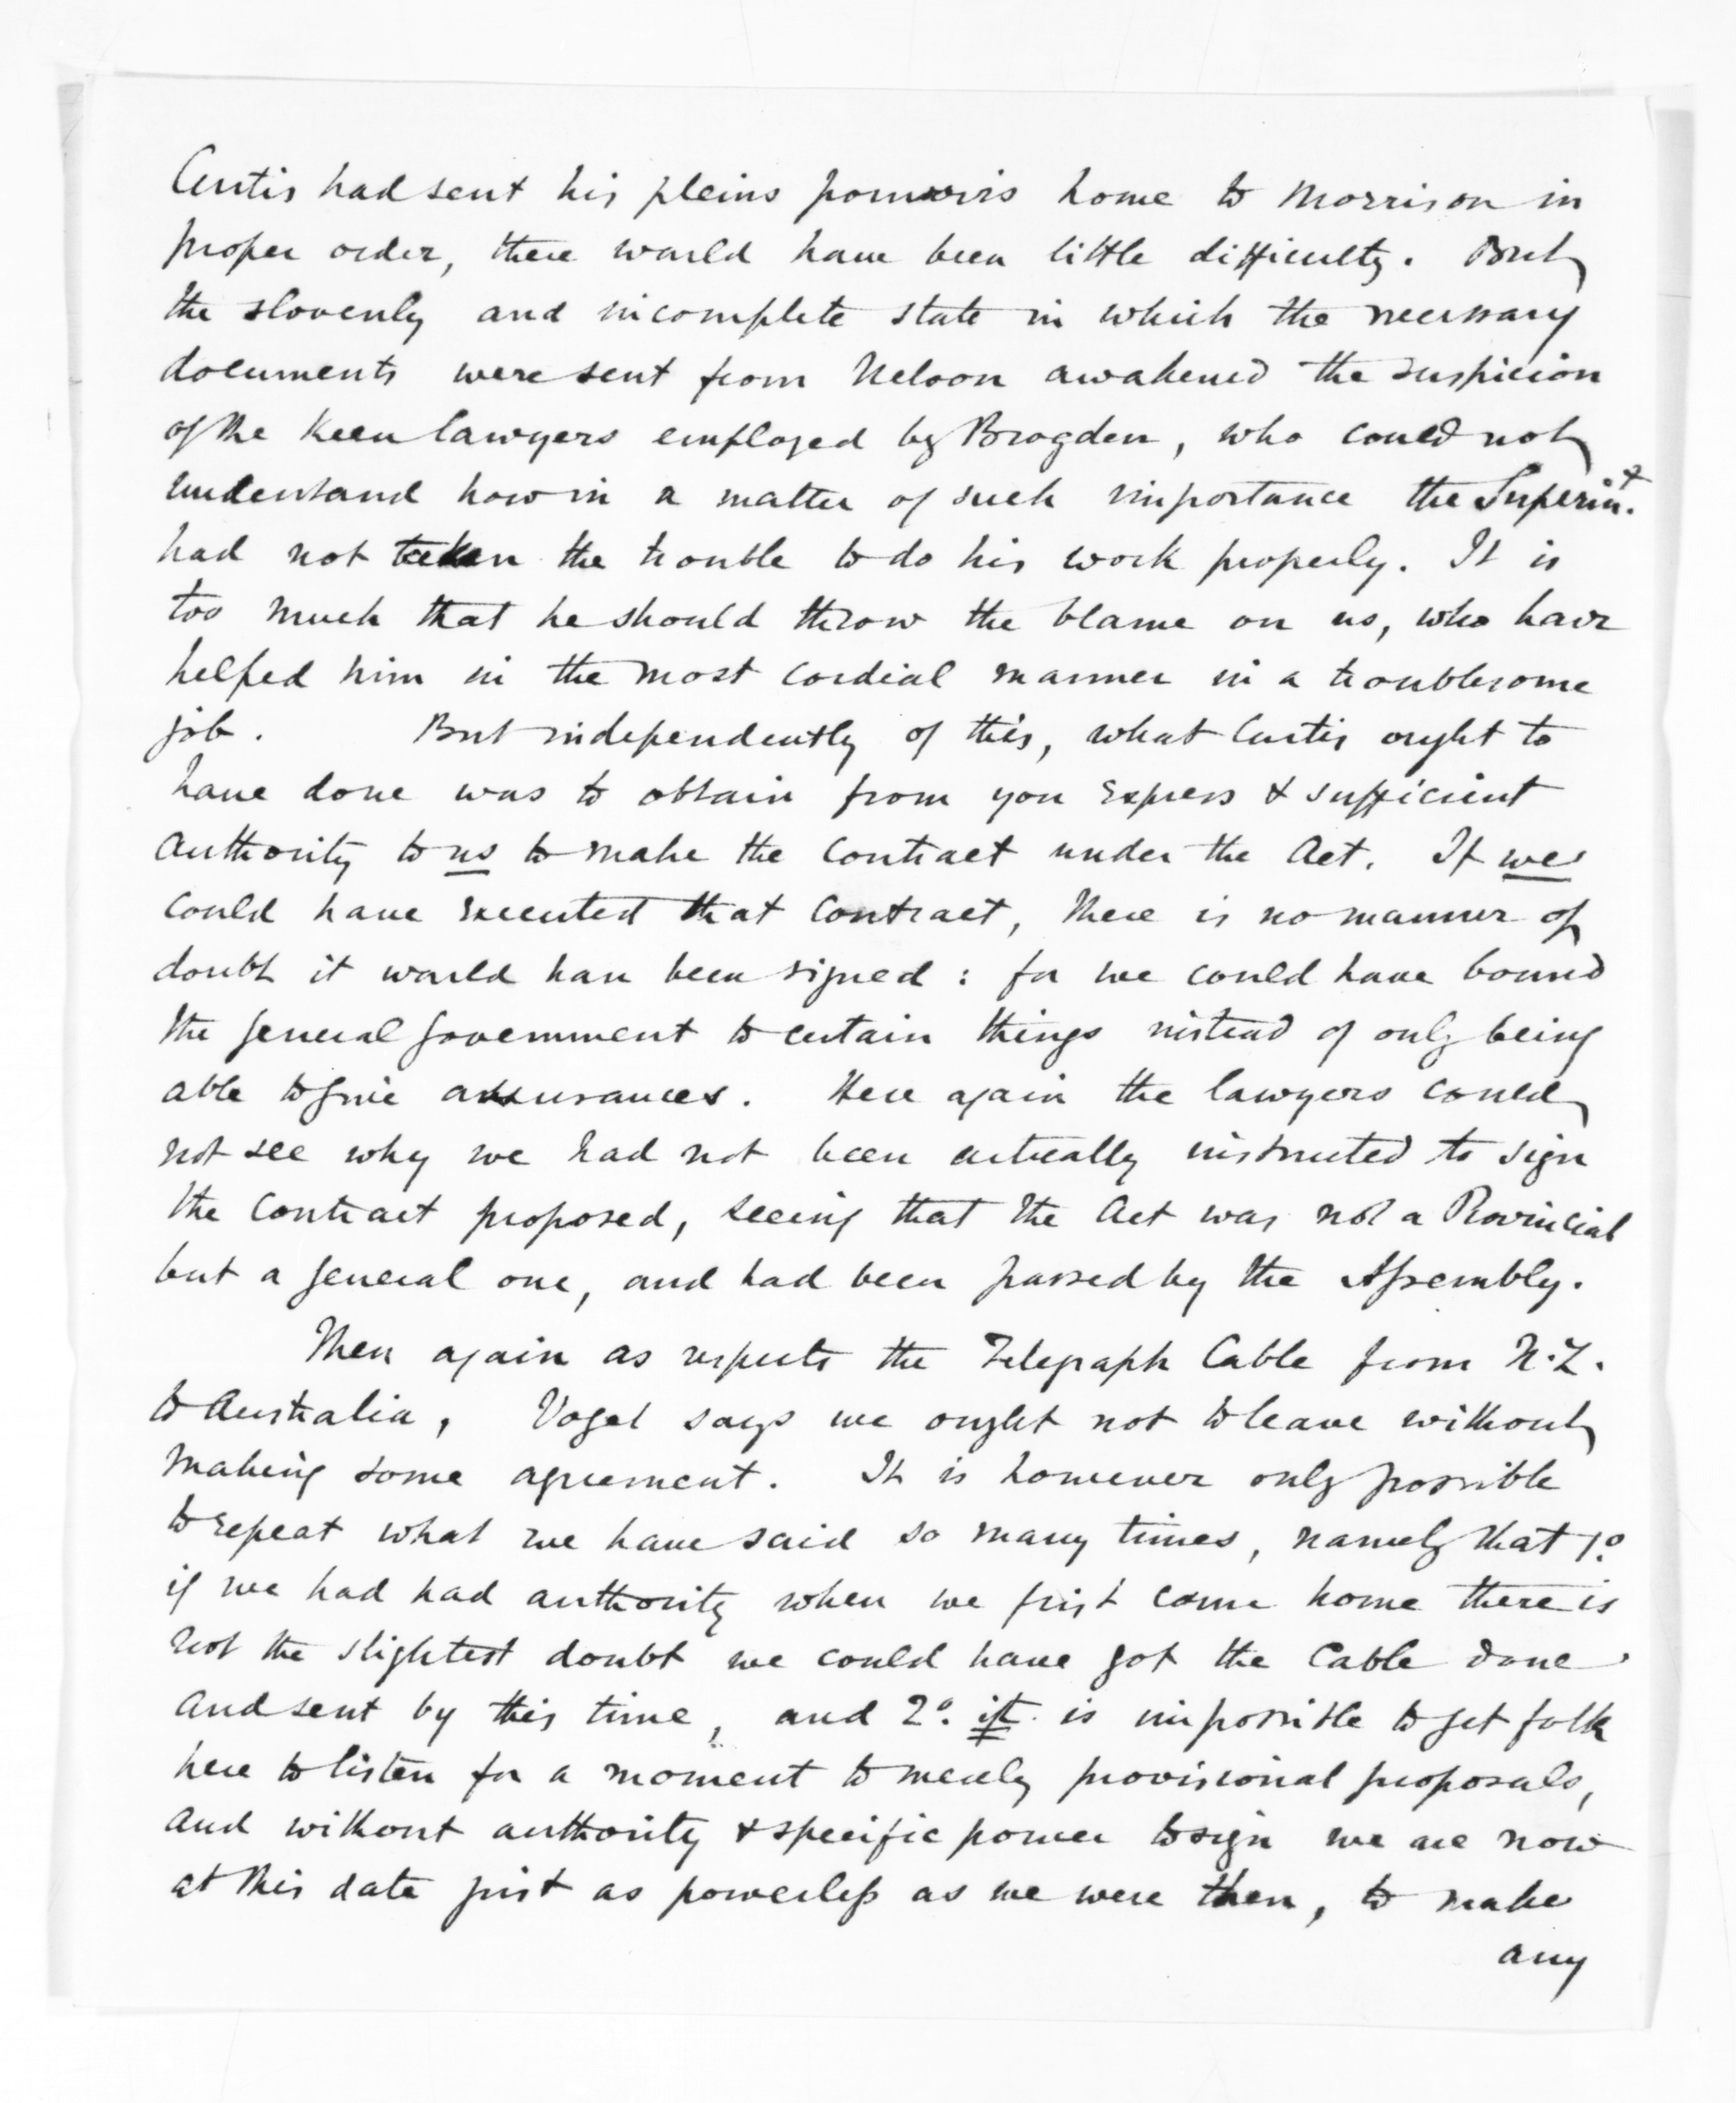 Curtis had sent his pleins pouvoirs home to Morrison in
proper order, there would have been little difficulty. But
the slovenly and incomplete state in which the necessary
documents were sent from Nelson awakened the suspicion
of the keen lawyers employed by Brogden, who could not
understand how in a matter of such importance the Superint.
had not taken the trouble to do his work properly. It is
too much that he should throw the blame on us, who have
helped him in the most cordial manner in a troublesome
job. But independently of this, what Curtis ought to
have done was to obtain from you express & sufficient
authority to us to make the contract under the Act. If we
could have executed that contract, there is no manner of
doubt it would have been signed: for we could have bound
the general government to certain things instead of only being
able to give assurances. Here again the lawyers could
not see why we had not been actually instructed to sign
the contract proposed, seeing that the Act was not a Provincial
but a general one, and had been passed by the Assembly.
Then again as respects the Telegraph Cable from N.Z.
to Australia, Vogel says we ought not to leave without
making some agreement. It is however only possible
to repeat what we have said so many times, namely that 1º.
if we had had authority when we first came home there is
not the slightest doubt we could have got the Cable done
and sent by this time, and 2º. it is impossible to get folk
here to listen for a moment to merely provisional proposals,
and without authority & specific power to sign we are now
at this date just as powerless as we were then, to make
any